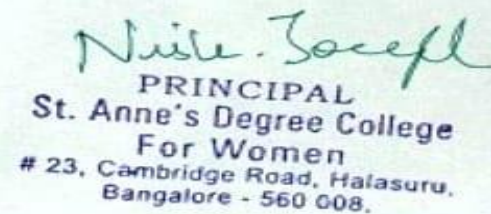 Joseph
PRINCIPAL
St. Anne's Degree College
For Women
# 23, Cambridge Road, Halasuru,
Bangalore - 560 008.